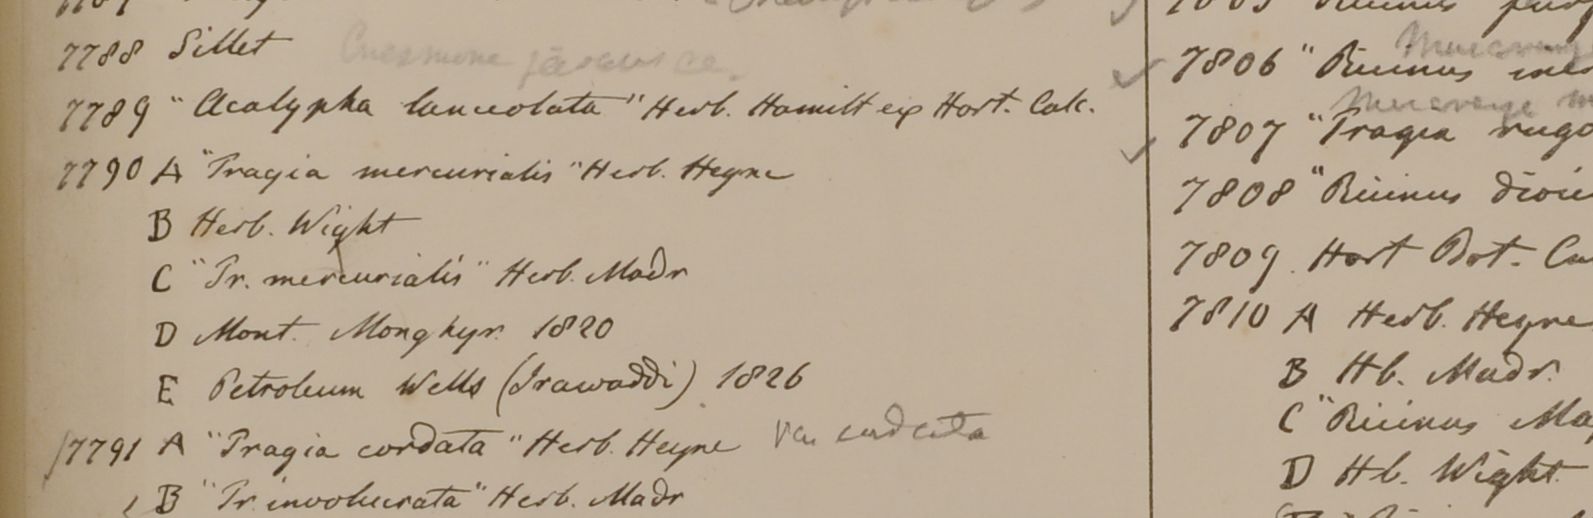 7788 Sillet Cnesmone javanica
7789 "Acalypha lanceolata" Herb. Hamilt ex Hort. Calc.
7790 A "Tragia mercurialis" Herb. Heyne
B Herb. Wight
C "Tr. mercurialis" Herb. Madr
D Mont. Monghyr. 1820
E Petroleum Wells (Irawaddi) 1826
7791 A "Tragia cordata" Herb. Heyne var cordata
B "Tr. involucrata" Herb. Madr
7806 "Ricinus
7807 "Tragia
7808 "Ricinus
7809. Hort Bot.
7810 A Herb. Heyne
B Hb. Madr.
C "Ricinus
D Hb. Wight